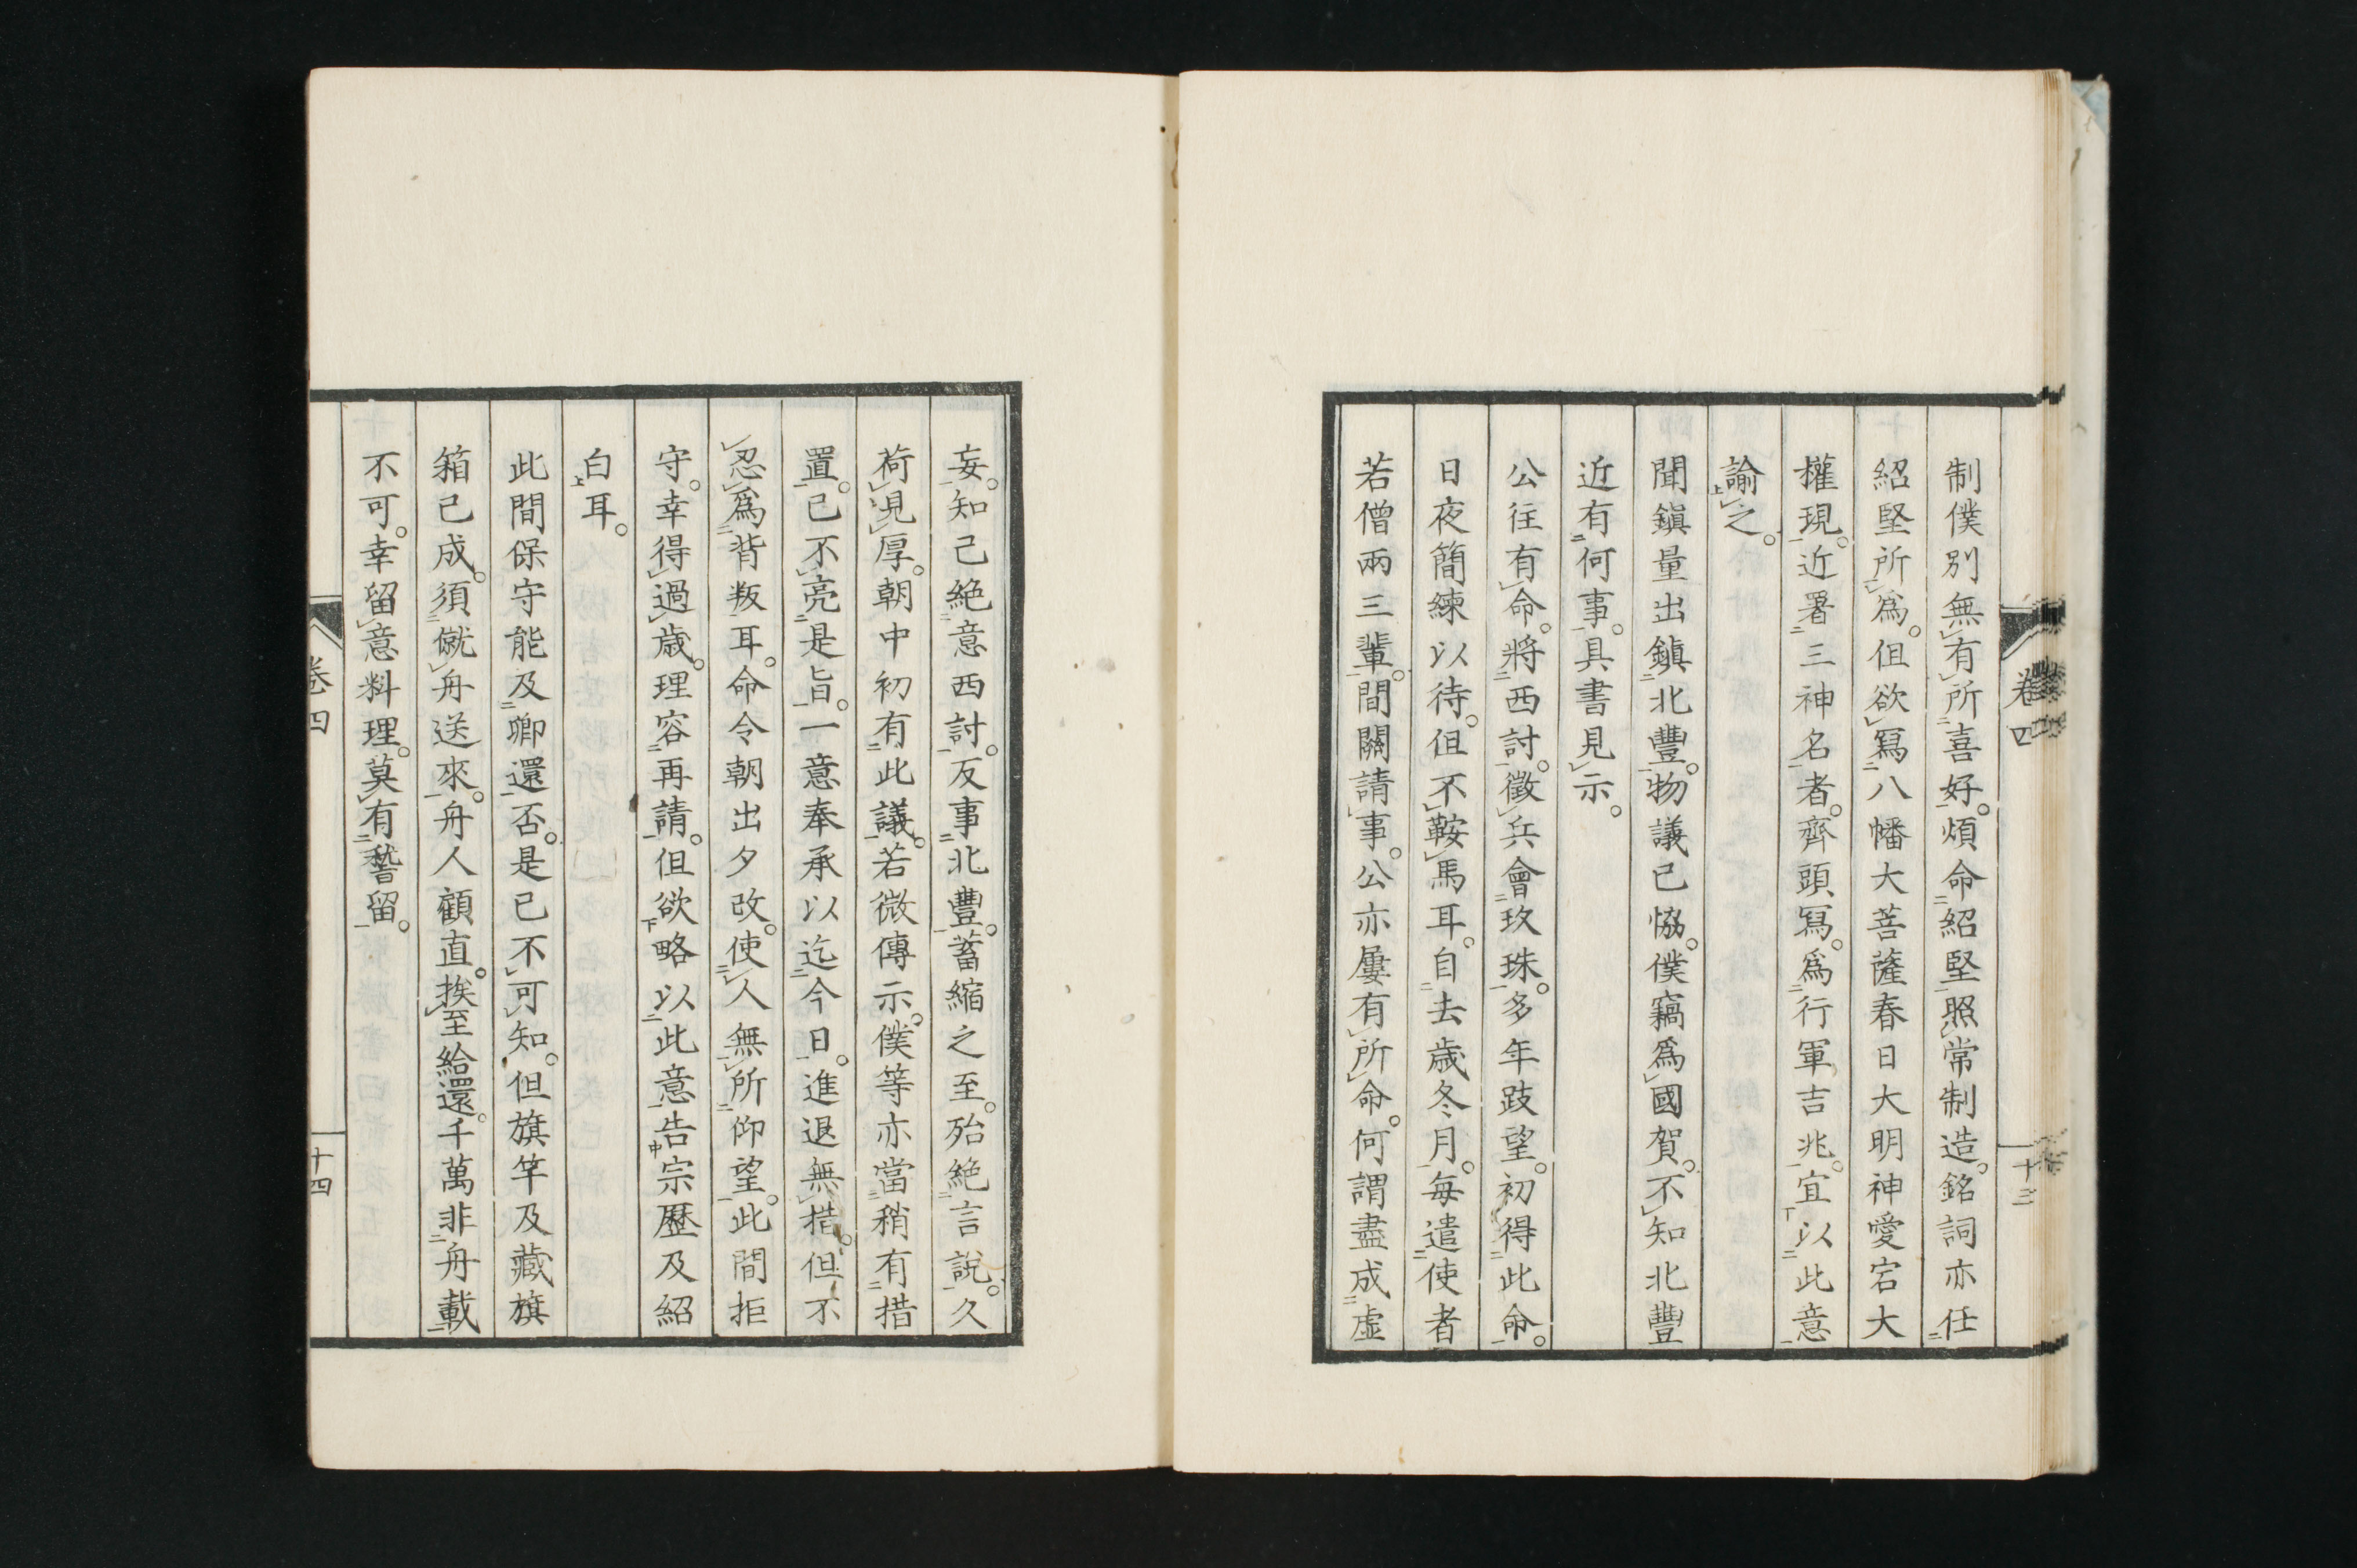 卷四
十三
制僕別無有所喜好。煩命紹堅照常制造。銘詞亦任
紹堅所爲。但欲寫八幡大菩薩春日大明神愛宕大
權現。近署三神名者。齊頭寫。爲行軍吉兆。宜以此意
諭之。
聞鎭量出鎭北豐。物議已恊。僕竊爲國賀。不知北豐
近有何事。具書見示。
公往有命。將西討。徵兵會玖珠。多年跂望。初得此命。
日夜簡練以待。但不鞍馬耳。自去歲冬月。每遣使者
若僧兩三輩。間關請事。公亦屢有所命。何謂盡成虛
妄。知己絶意西討。反事北豐。蓄縮之至。殆絶言說。久
荷見厚。朝中初有此議。若微傳示。僕等亦當稍有措
置。已不亮是旨。一意奉承以迄今日。進退無措。但不
忍爲背叛耳。命令朝出夕改。使人無所仰望。此間拒
守。幸得過歲。理容再請。但欲略以此意告宗歷及紹
白耳。
此間保守能及卿還否。是已不可知。但旗竿及藏旗
箱已成。須僦舟送來。舟人顧直。挨至給還。千萬非舟載
不可。幸留意料理。莫有稽留。
卷四
十四